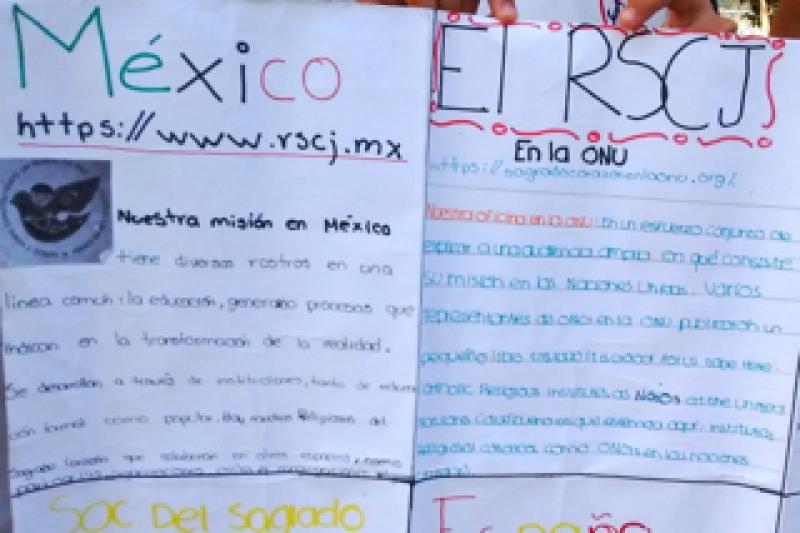 México
https://www.rscj.mx
Nuestra misión en México
tiene diversos rostros en una
línea común: la educación, generando procesos que
en la transformación de la realidad.
Se desarrollan a través de instituciones, tanto de
popular. Hay muchas Religiosas del
Sagrado Corazón que colaboran en otros espacios, como
El RSCJ
En la ONU
https://sagradocorazonenlaonu.org/
Nuestra oficina en la ONU: En un esfuerzo conjunto de
explicar a una audiencia amplia en qué consiste
su misión en las Naciones Unidas, varios
representantes de ONGs en la ONU publicaron un
pequeño libro
Catholic Religious Institutes as NGOs at the United
institutos
religiosos católicos como ONGs en las naciones
Soc Del Sagrado
España